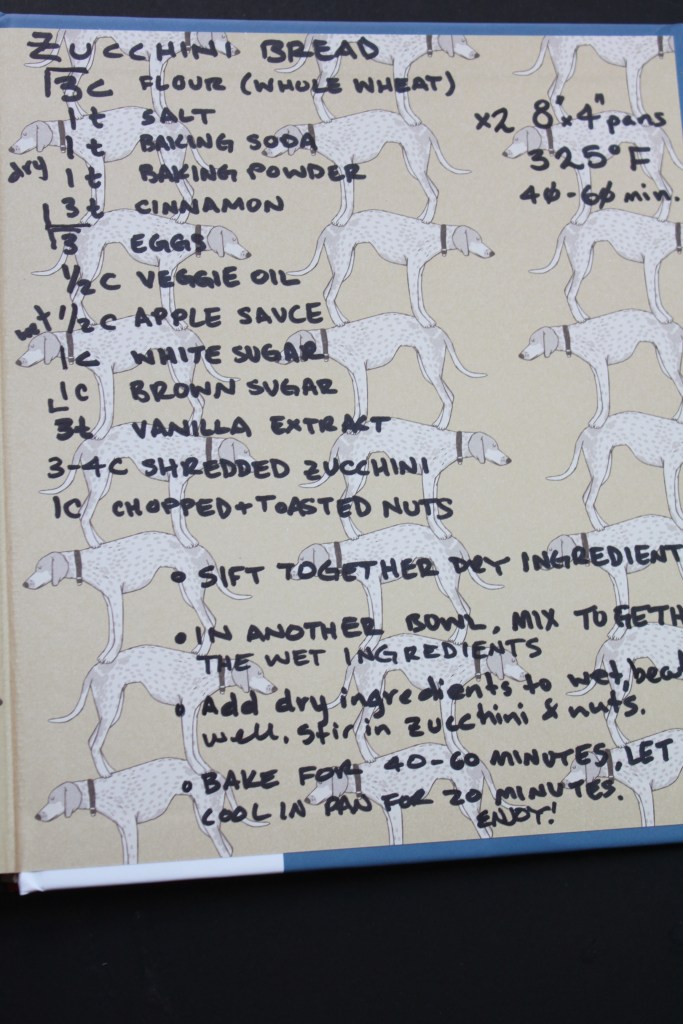 ZUCCHINI BREAD
3c FLOUR (WHOLE WHEAT)
1 t SALT
1 t BAKING SODA
dry 1 t BAKING POWDER
3 t CINNAMON
x2 8"x4" pans
325°F
40-60 min.
3 EGGS
1/2 C VEGGIE OIL
wet 1/2 C APPLE SAUCE
1 C WHITE SUGAR
1 C BROWN SUGAR
3t VANILLA EXTRACT
3-4C SHREDDED ZUCCHINI
1C CHOPPED + TOASTED NUTS
• SIFT TOGETHER DRY INGREDIENT
• IN ANOTHER BOWL, MIX TOGETH
THE WET INGREDIENTS
• Add dry ingredients to wet, beat
well. Stir in zucchini & nuts.
• BAKE FOR 40-60 MINUTES, LET
COOL IN PAN FOR 20 MINUTES.
ENJOY!